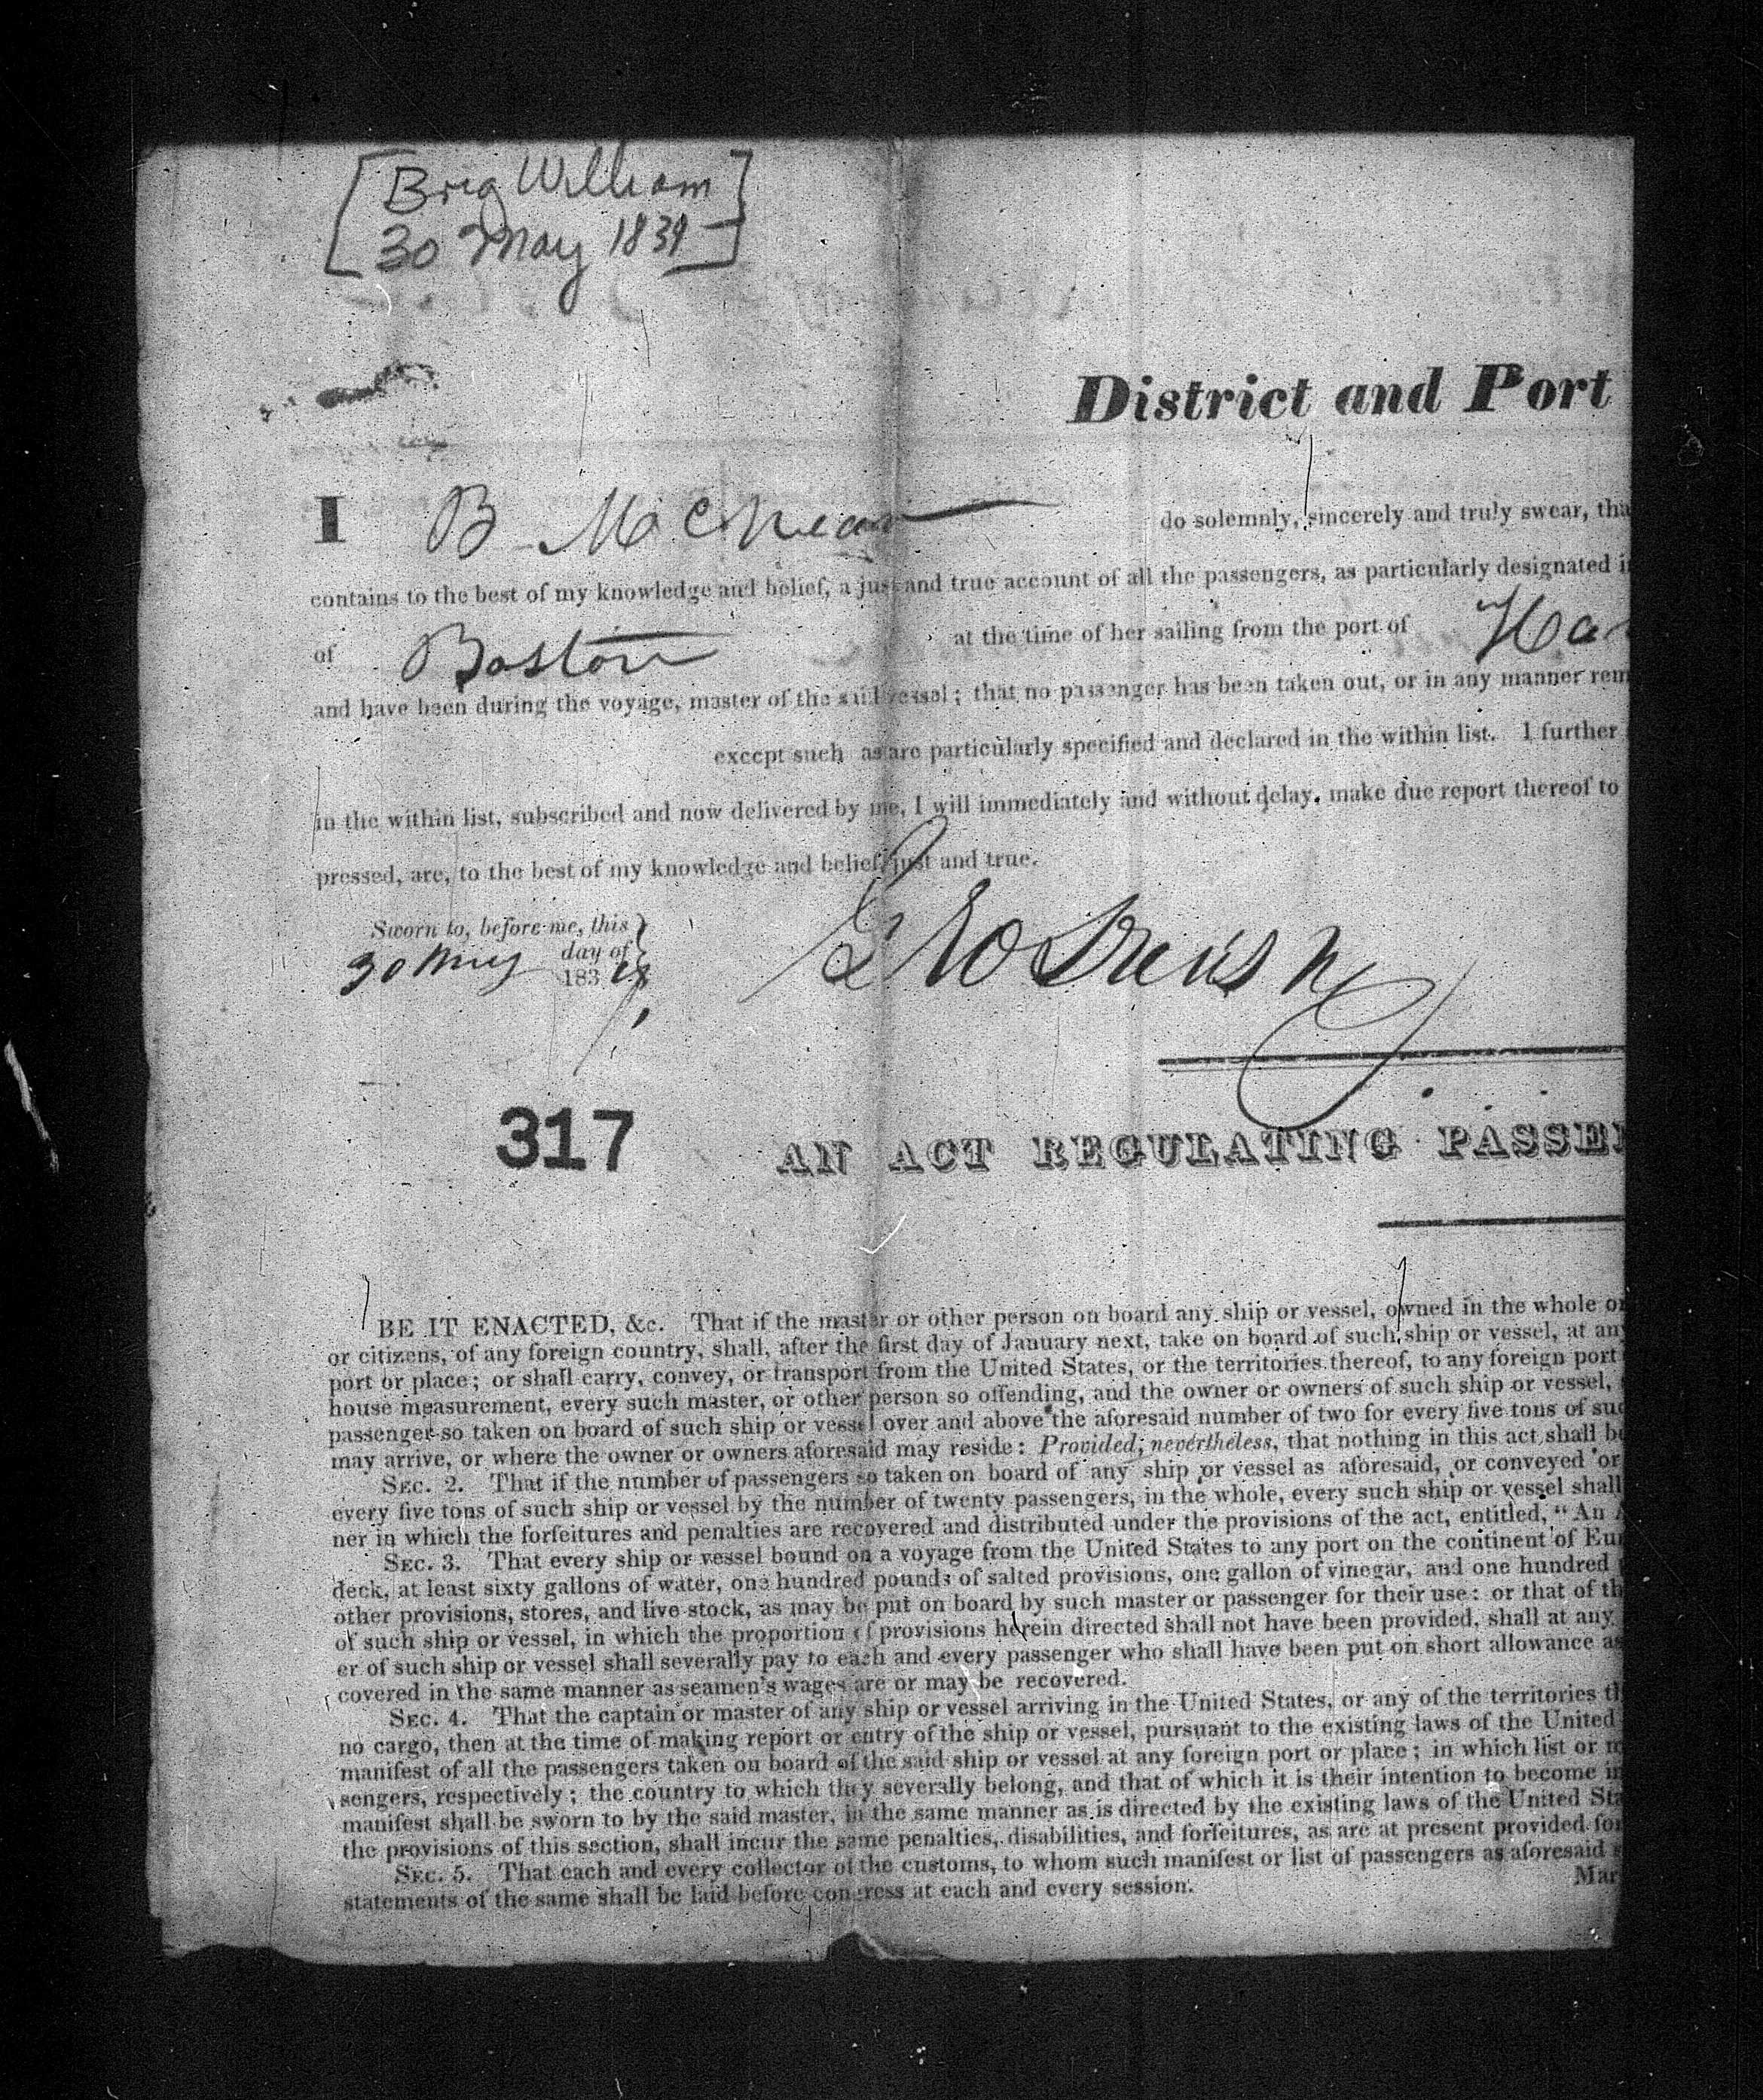 [Brig William
30 May 1839]
District and Port
I B McNear do solemnly, sincerely and truly swear, tha
contains to the best of my knowledge and belief, a just and true account of all the passengers, as particularly designated i
of Boston at the time of her sailing from the port of Ha
and have been during the voyage, master of the said vessel; that no passenger has been taken out, or in any manner rem
except such as are particularly specified and declared in the within list. I further
in the within list, subscribed and now delivered by me, I will immediately and without delay, make due report thereof to
pressed, are, to the best of my knowledge and belief, just and true.
Sworn to, before me, this
30 May day of
183
317 AN ACT REGULATING PASSEN
BE IT ENACTED, &c. That if the master or other person on board any ship or vessel, owned in the whole or
or citizens, of any foreign country, shall, after the first day of January next, take on board of such ship or vessel, at any
port or place; or shall carry, convey, or transport from the United States, or the territories thereof, to any foreign port
house measurement, every such master, or other person so offending, and the owner or owners of such ship or vessel,
passenger so taken on board of such ship or vessel over and above the aforesaid number of two for every five tons of suc
may arrive, or where the owner or owners aforesaid may reside: Provided, nevertheless, that nothing in this act shall be
SEC. 2. That if the number of passengers so taken on board of any ship or vessel as aforesaid, or conveyed or
every five tons of such ship or vessel by the number of twenty passengers, in the whole, every such ship or vessel shall
ner in which the forfeitures and penalties are recovered and distributed under the provisions of the act, entitled, "An A
SEC. 3. That every ship or vessel bound on a voyage from the United States to any port on the continent of Eur
deck, at least sixty gallons of water, one hundred pounds of salted provisions, one gallon of vinegar, and one hundred
other provisions, stores, and live stock, as may be put on board by such master or passenger for their use: or that of th
of such ship or vessel, in which the proportion of provisions herein directed shall not have been provided, shall at any
er of such ship or vessel shall severally pay to each and every passenger who shall have been put on short allowance as
covered in the same manner as seamen's wages are or may be recovered.
SEC. 4. That the captain or master of any ship or vessel arriving in the United States, or any of the territories th
no cargo, then at the time of making report or entry of the ship or vessel, pursuant to the existing laws of the United
manifest of all the passengers taken on board of the said ship or vessel at any foreign port or place; in which list or m
sengers, respectively; the country to which they severally belong, and that of which it is their intention to become in
manifest shall be sworn to by the said master, in the same manner as is directed by the existing laws of the United Sta
the provisions of this section, shall incur the same penalties, disabilities, and forfeitures, as are at present provided for
SEC. 5. That each and every collector of the customs, to whom such manifest or list of passengers as aforesaid s
statements of the same shall be laid before congress at each and every session. Mar